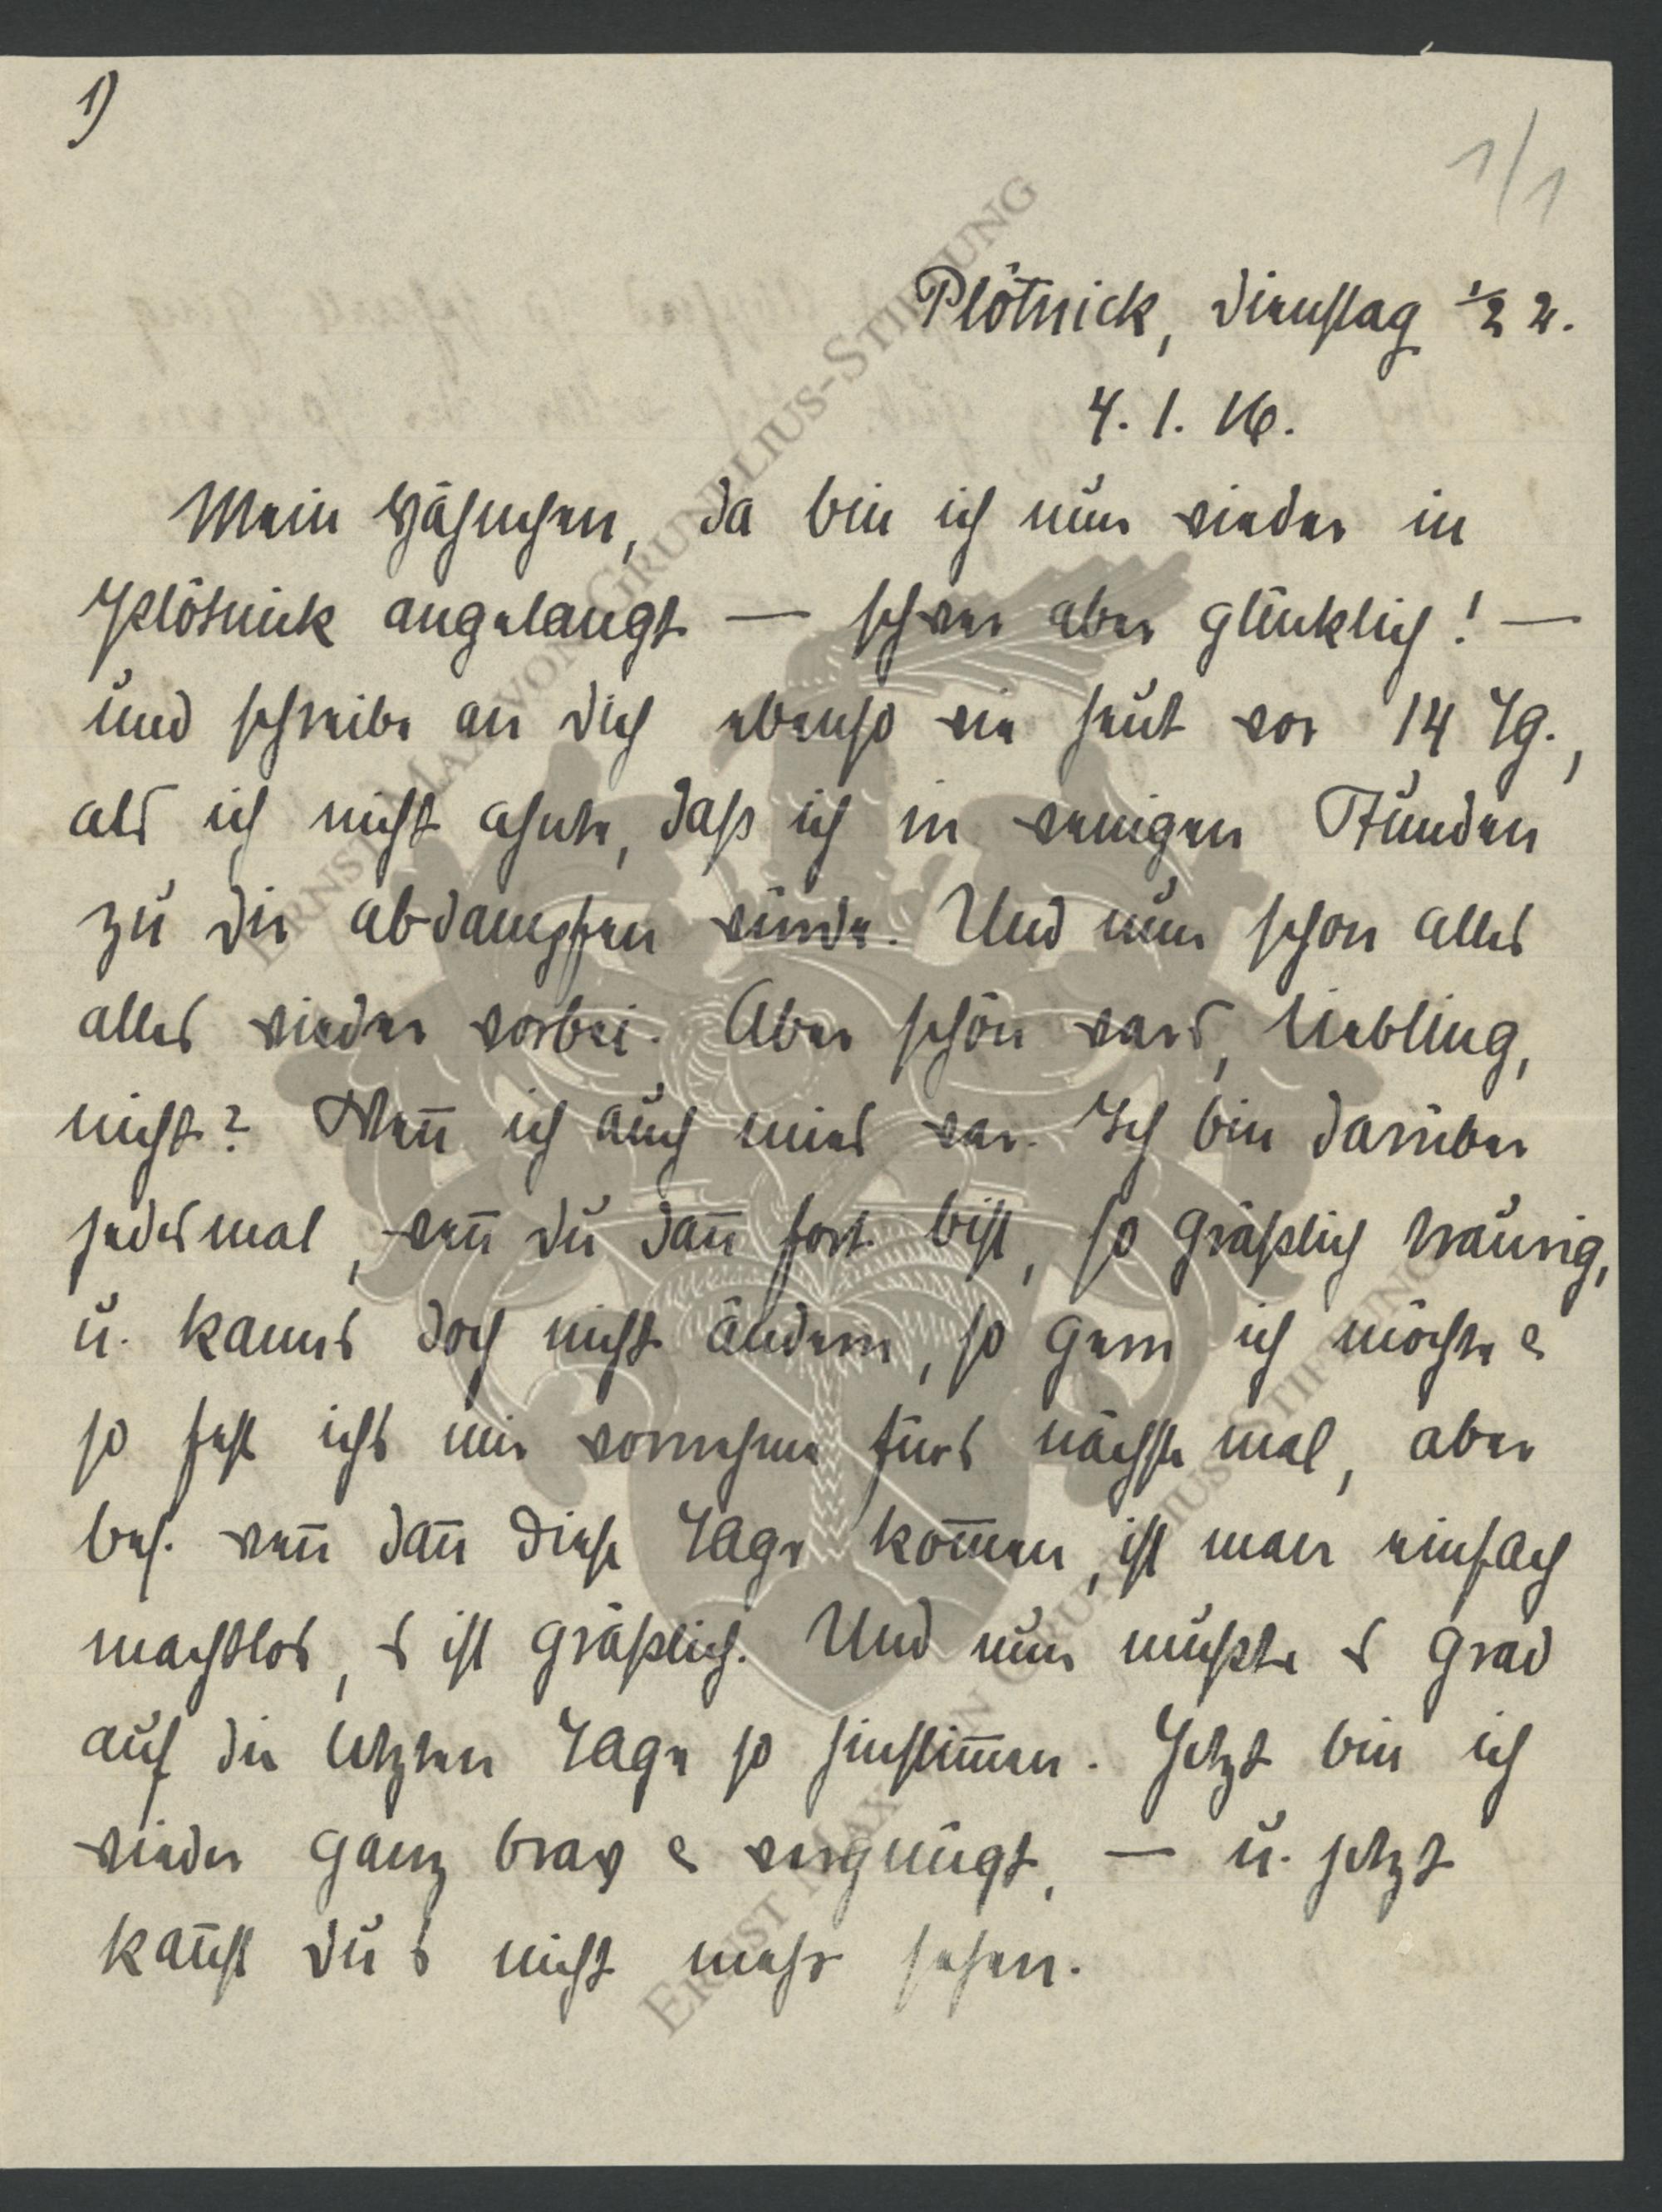 1)
1/1
Plötnick, Dienstag ½ 2.
4. 1. 16.
Mein Hähnchen, da bin ich nun wieder in
Plötnick angelangt — schwer aber glücklich! —
und schreibe an Dich ebenso wie heut vor 14 Tg.,
als ich nicht ahnte, daß ich in wenigen Stunden
zu Dir abdampfen würde. Und nun schon alles
alles wieder vorbei. Aber schön wars, Liebling,
nicht? Wen̅ ich auch mies war. Ich bin darüber
jedesmal, wen̅ Du dan̅ fort bist, so gräßlich traurig,
u. kanns doch nicht ändern, so gern ich möchte &
so fest ichs mir vornehme fürs nächste mal, aber
bes. wen̅ dan̅ diese Tage kom̅en, ist man einfach
machtlos, s ist gräßlich. Und nun mußte s grad
auf die letzten Tage so hinstim̅en. Jetzt bin ich
wieder ganz brav & vergnügt, — u. jetzt
kan̅st Du s nicht mehr sehen.
ERNST MAX VON GRUNELIUS-STIFTUNG
ERNST MAX VON GRUNELIUS-STIFTUNG